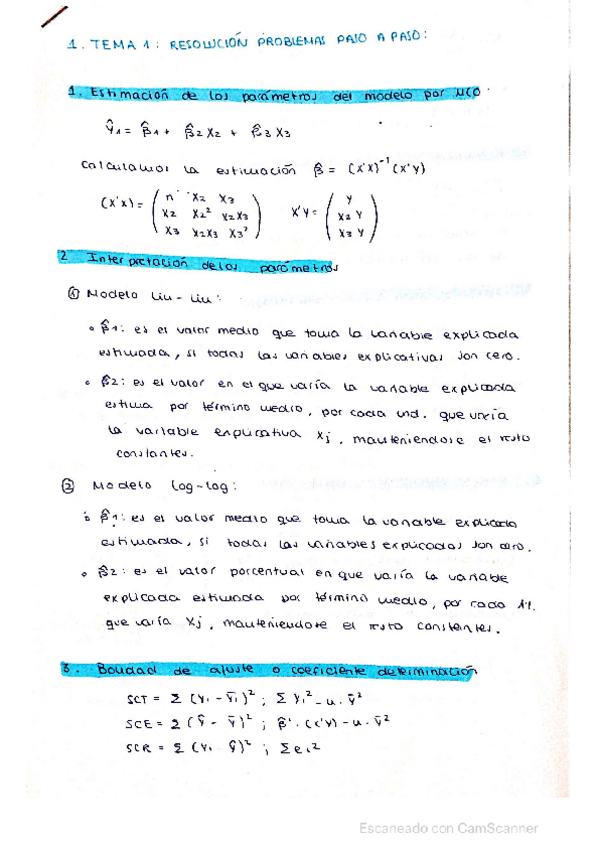 1. TEMA 1: RESOLUCIÓN PROBLEMAS PASO A PASO:
1. Estimación de los parámetros del modelo por MCO
Ŷ1 = β̂1 + β̂2 X2 + β̂3 X3
Calculamos la estimación β̂ = (X'X)⁻¹ (X'Y)
(X'X) = ( n X2 X3
X2 X2² X2X3
X3 X2X3 X3² )
X'Y = ( Y
X2 Y
X3 Y )
2 Interpretación de los parámetros
① Modelo Liu - Liu:
• β̂1: es el valor medio que toma la variable explicada
estimada, si todas las variables explicativas son cero.
• β̂2: es el valor en el que varía la variable explicada
estima por término medio, por cada und. que varía
la variable explicativa Xj, manteniendose el resto
constantes.
② Modelo Log-log:
• β̂1: es el valor medio que toma la variable explicada
estimada, si todas las variables explicadas son cero.
• β̂2: es el valor porcentual en que varía la variable
explicada estimada por término medio, por cada 1%.
que varía Xj, manteniendose el resto constantes.
3. Bondad de ajuste o coeficiente determinación
SCT = Σ (Yi - Ȳi)² ; Σ Yi² - n · Ȳ²
SCE = Σ (Ŷ - Ȳ)² ; β̂' · (X'Y) - n · Ȳ²
SCR = Σ (Yi - Ŷ)² ; Σ ei²
Escaneado con CamScanner